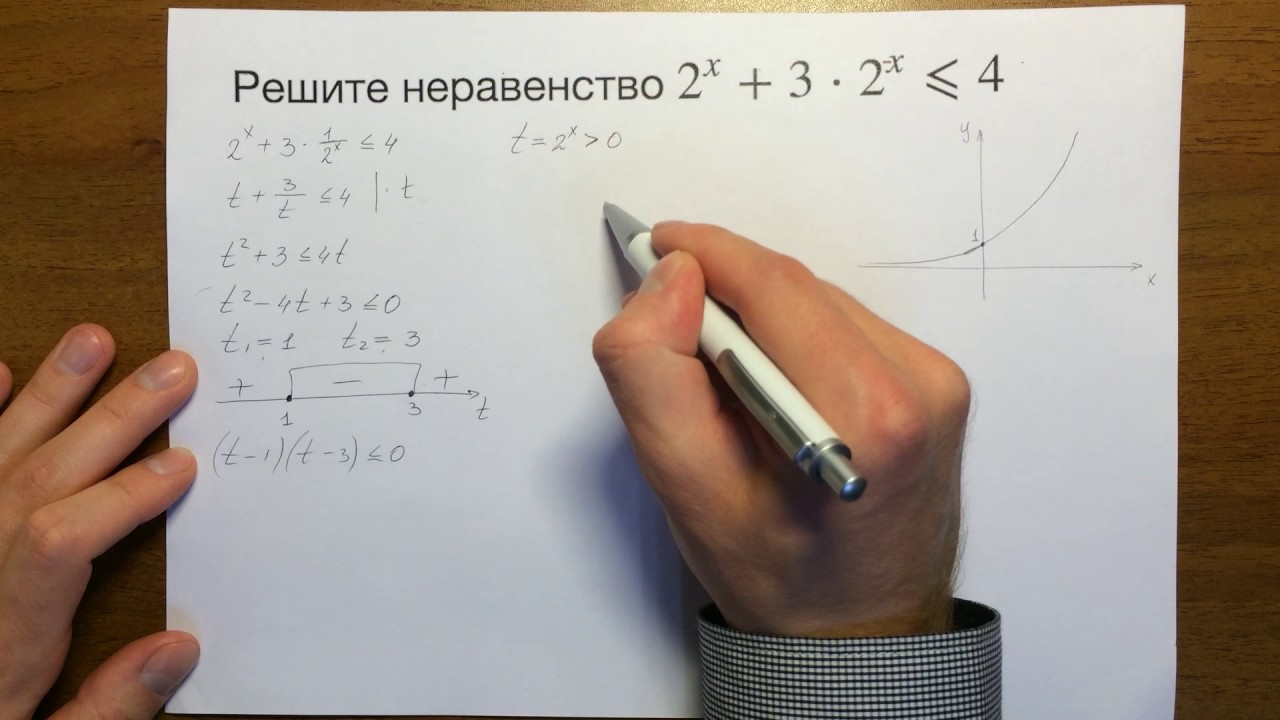 Решите неравенство 2ˣ + 3 · 2⁻ˣ ⩽ 4
2ˣ + 3 · 1/2ˣ ≤ 4
t = 2ˣ > 0
t + 3/t ≤ 4 | · t
t² + 3 ≤ 4t
t² − 4t + 3 ≤ 0
t₁ = 1 t₂ = 3
+ − +
1 3 t
(t − 1)(t − 3) ≤ 0
y
1
x